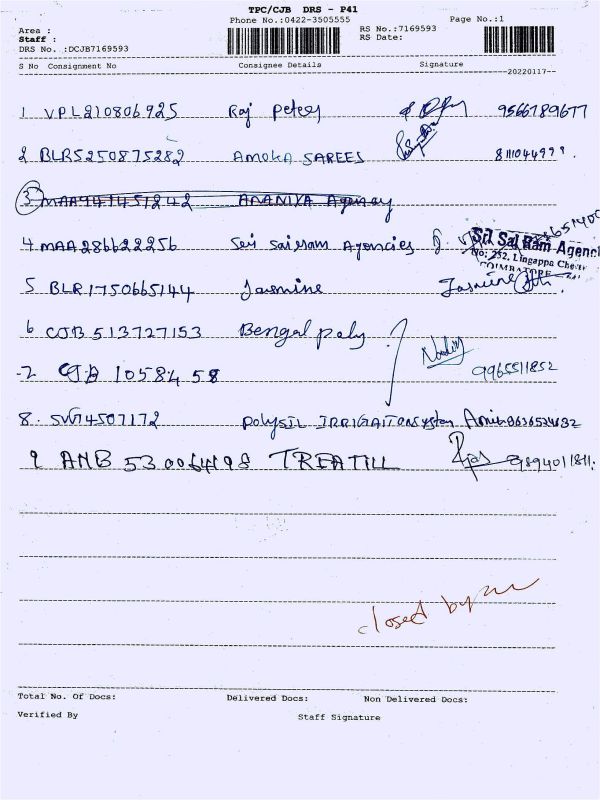 TPC/CJB DRS - P41
Phone No.:0422-3505555
Page No.:1
Area :
Staff :
DRS No. :DCJB7169593
RS No.:7169593
RS Date:
S No Consignment No Consignee Details Signature
20220117
1 VPL210806925 Raj Peters 9566789677
2 BLR5250875282 AMOKA SAREES 8111044999.
3 MAA941451242 ANANIYA Agency
4 MAA286622256 Sri Sairam Agencies
Sri Sai Ram Agenci
No: 252, Lingappa Chetti
COIMBATORE
5 BLR1750665144 Jasmine Jasmine
6 CJB 513727153 Bengal paly
7 CJB 1058458 9965511852
8. SVT4507172 POLYSIL IRRIGAITON System
9 AMB 530064198 TREATILL 9894011811.
closed by
Total No. Of Docs: Delivered Docs: Non Delivered Docs:
Verified By Staff Signature